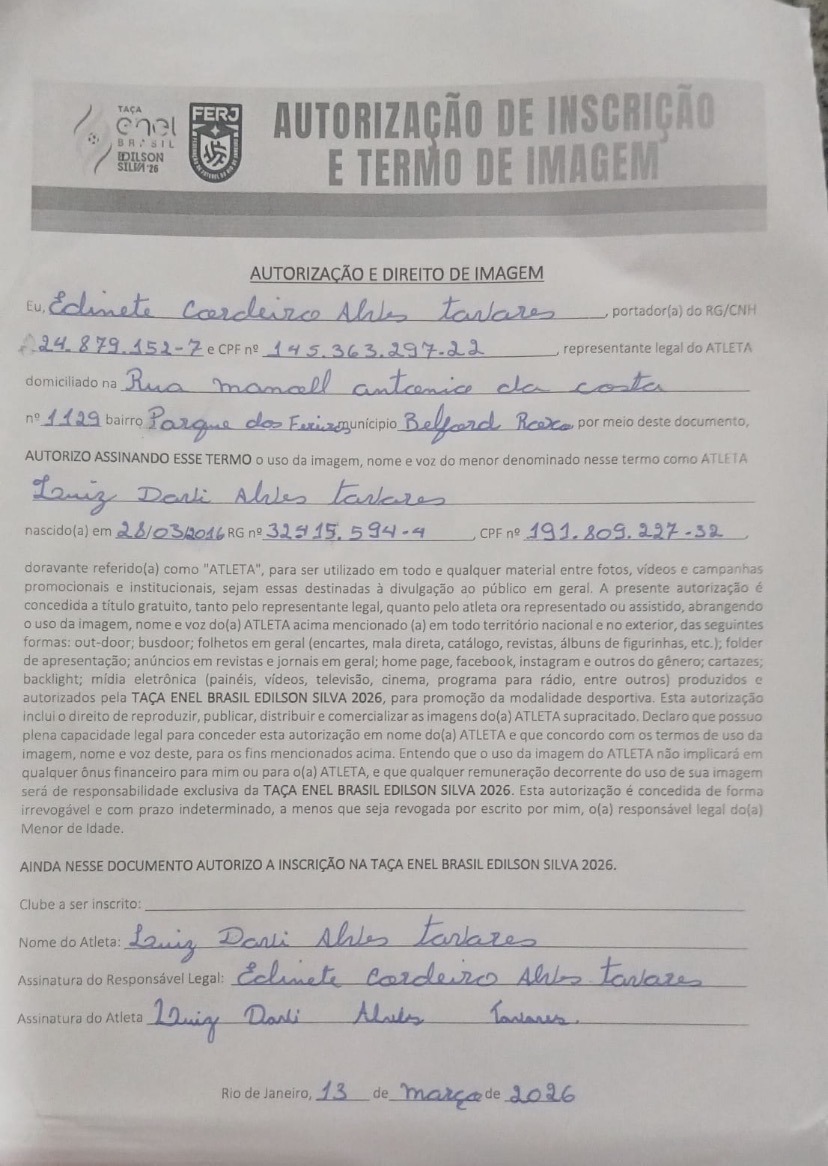 TAÇA
enel
BRASIL
EDILSON
SILVA '26
FERJ
AUTORIZAÇÃO DE INSCRIÇÃO
E TERMO DE IMAGEM
AUTORIZAÇÃO E DIREITO DE IMAGEM
Eu, Edinete Cordeiro Alves Tavares, portador(a) do RG/CNH
24.879.152-7 e CPF nº 145.363.297-22, representante legal do ATLETA
domiciliado na Rua manoell antonio da costa
nº 1129 bairro Parque dos município Belford Roxo, por meio deste documento,
AUTORIZO ASSINANDO ESSE TERMO o uso da imagem, nome e voz do menor denominado nesse termo como ATLETA
Luiz Darli Alves Tavares
nascido(a) em 28/03/2016 RG nº 594-4, CPF nº 191.809.227-32,
doravante referido(a) como "ATLETA", para ser utilizado em todo e qualquer material entre fotos, vídeos e campanhas
promocionais e institucionais, sejam essas destinadas à divulgação ao público em geral. A presente autorização é
concedida a título gratuito, tanto pelo representante legal, quanto pelo atleta ora representado ou assistido, abrangendo
o uso da imagem, nome e voz do(a) ATLETA acima mencionado (a) em todo território nacional e no exterior, das seguintes
formas: out-door; busdoor; folhetos em geral (encartes, mala direta, catálogo, revistas, álbuns de figurinhas, etc.); folder
de apresentação; anúncios em revistas e jornais em geral; home page, facebook, instagram e outros do gênero; cartazes;
backlight; mídia eletrônica (painéis, vídeos, televisão, cinema, programa para rádio, entre outros) produzidos e
autorizados pela TAÇA ENEL BRASIL EDILSON SILVA 2026, para promoção da modalidade desportiva. Esta autorização
inclui o direito de reproduzir, publicar, distribuir e comercializar as imagens do(a) ATLETA supracitado. Declaro que possuo
plena capacidade legal para conceder esta autorização em nome do(a) ATLETA e que concordo com os termos de uso da
imagem, nome e voz deste, para os fins mencionados acima. Entendo que o uso da imagem do ATLETA não implicará em
qualquer ônus financeiro para mim ou para o(a) ATLETA, e que qualquer remuneração decorrente do uso de sua imagem
será de responsabilidade exclusiva da TAÇA ENEL BRASIL EDILSON SILVA 2026. Esta autorização é concedida de forma
irrevogável e com prazo indeterminado, a menos que seja revogada por escrito por mim, o(a) responsável legal do(a)
Menor de Idade.
AINDA NESSE DOCUMENTO AUTORIZO A INSCRIÇÃO NA TAÇA ENEL BRASIL EDILSON SILVA 2026.
Clube a ser inscrito:
Nome do Atleta: Luiz Darli Alves Tavares
Assinatura do Responsável Legal: Edinete Cordeiro Alves Tavares
Assinatura do Atleta Luiz Darli Alves Tavares.
Rio de Janeiro, 13 de março de 2026